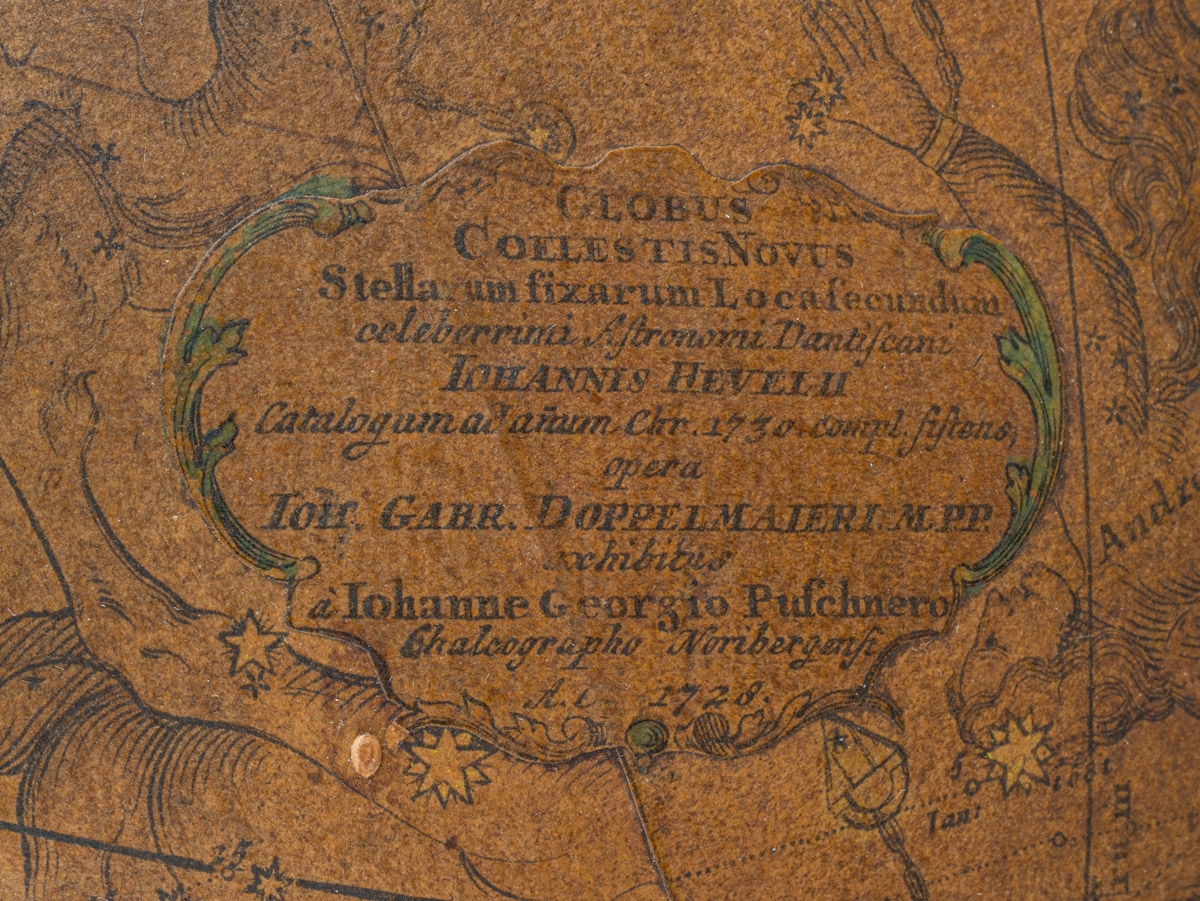 GLOBUS
COELESTIS NOVUS
Stellarum fixarum Loca ſecundum
celeberrimi Aſtronomi Dantiſcani
IOHANNIS HEVELII
Catalogum ad añum Chr. 1730. compl. ſiſtens,
opera
IOH. GABR. DOPPELMAIERI. M.PP.
exhibitus
à Iohanne Georgio Puſchnero
Chalcographo Noribergenſi
A. C 1728.
Andr
Jan:
15